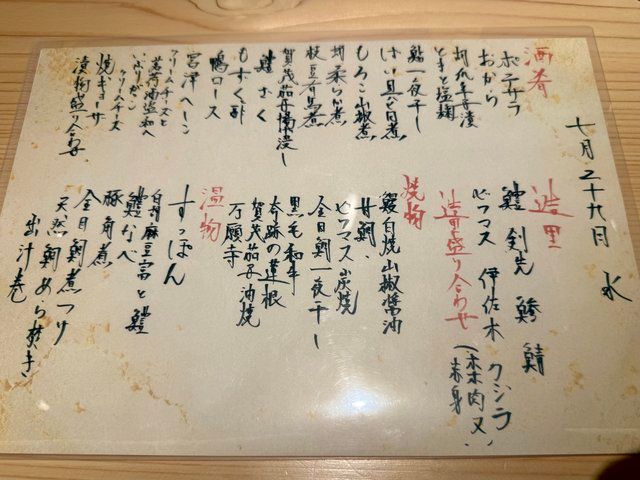 七月二十九日 水
酒肴
ポテサラ
おから
胡瓜辛子漬
とまと塩麹
鮎一夜干し
ばい貝旨煮
もろこ山椒煮
蛸柔らか煮
枝豆有馬煮
賀茂茄子揚浸し
鱧ざく
もずく酢
鴨ロース
宮津へしこ
クリームチーズと
いぶりガッコ
クリームチーズ
焼ギョーザ
漬物盛り合わせ
造里
鱧 剣先 鯵 鯖
ビワマス 伊佐木 クジラ
(赤肉又、
赤身)
造里盛り合わせ
焼物
鰻白焼山椒醤油
甘鯛、
ビワマス炭焼
金目鯛一夜干し
黒毛和牛
奇跡の蓮根
賀茂茄子油焼
万願寺
温物
すっぽん
白胡麻豆富と鱧
鱧なべ
豚角煮
金目鯛煮つけ
天然鯛あら焚き
出汁巻